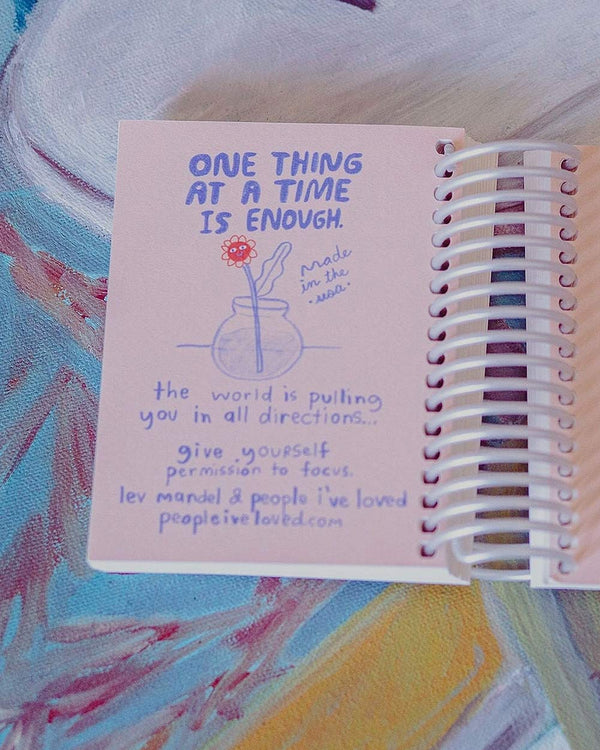 ONE THING
AT A TIME
IS ENOUGH.
made
in the
•usa•
the world is pulling
you in all directions...
give yourself
permission to focus.
lev mandel & people i've loved
peopleiveloved.com